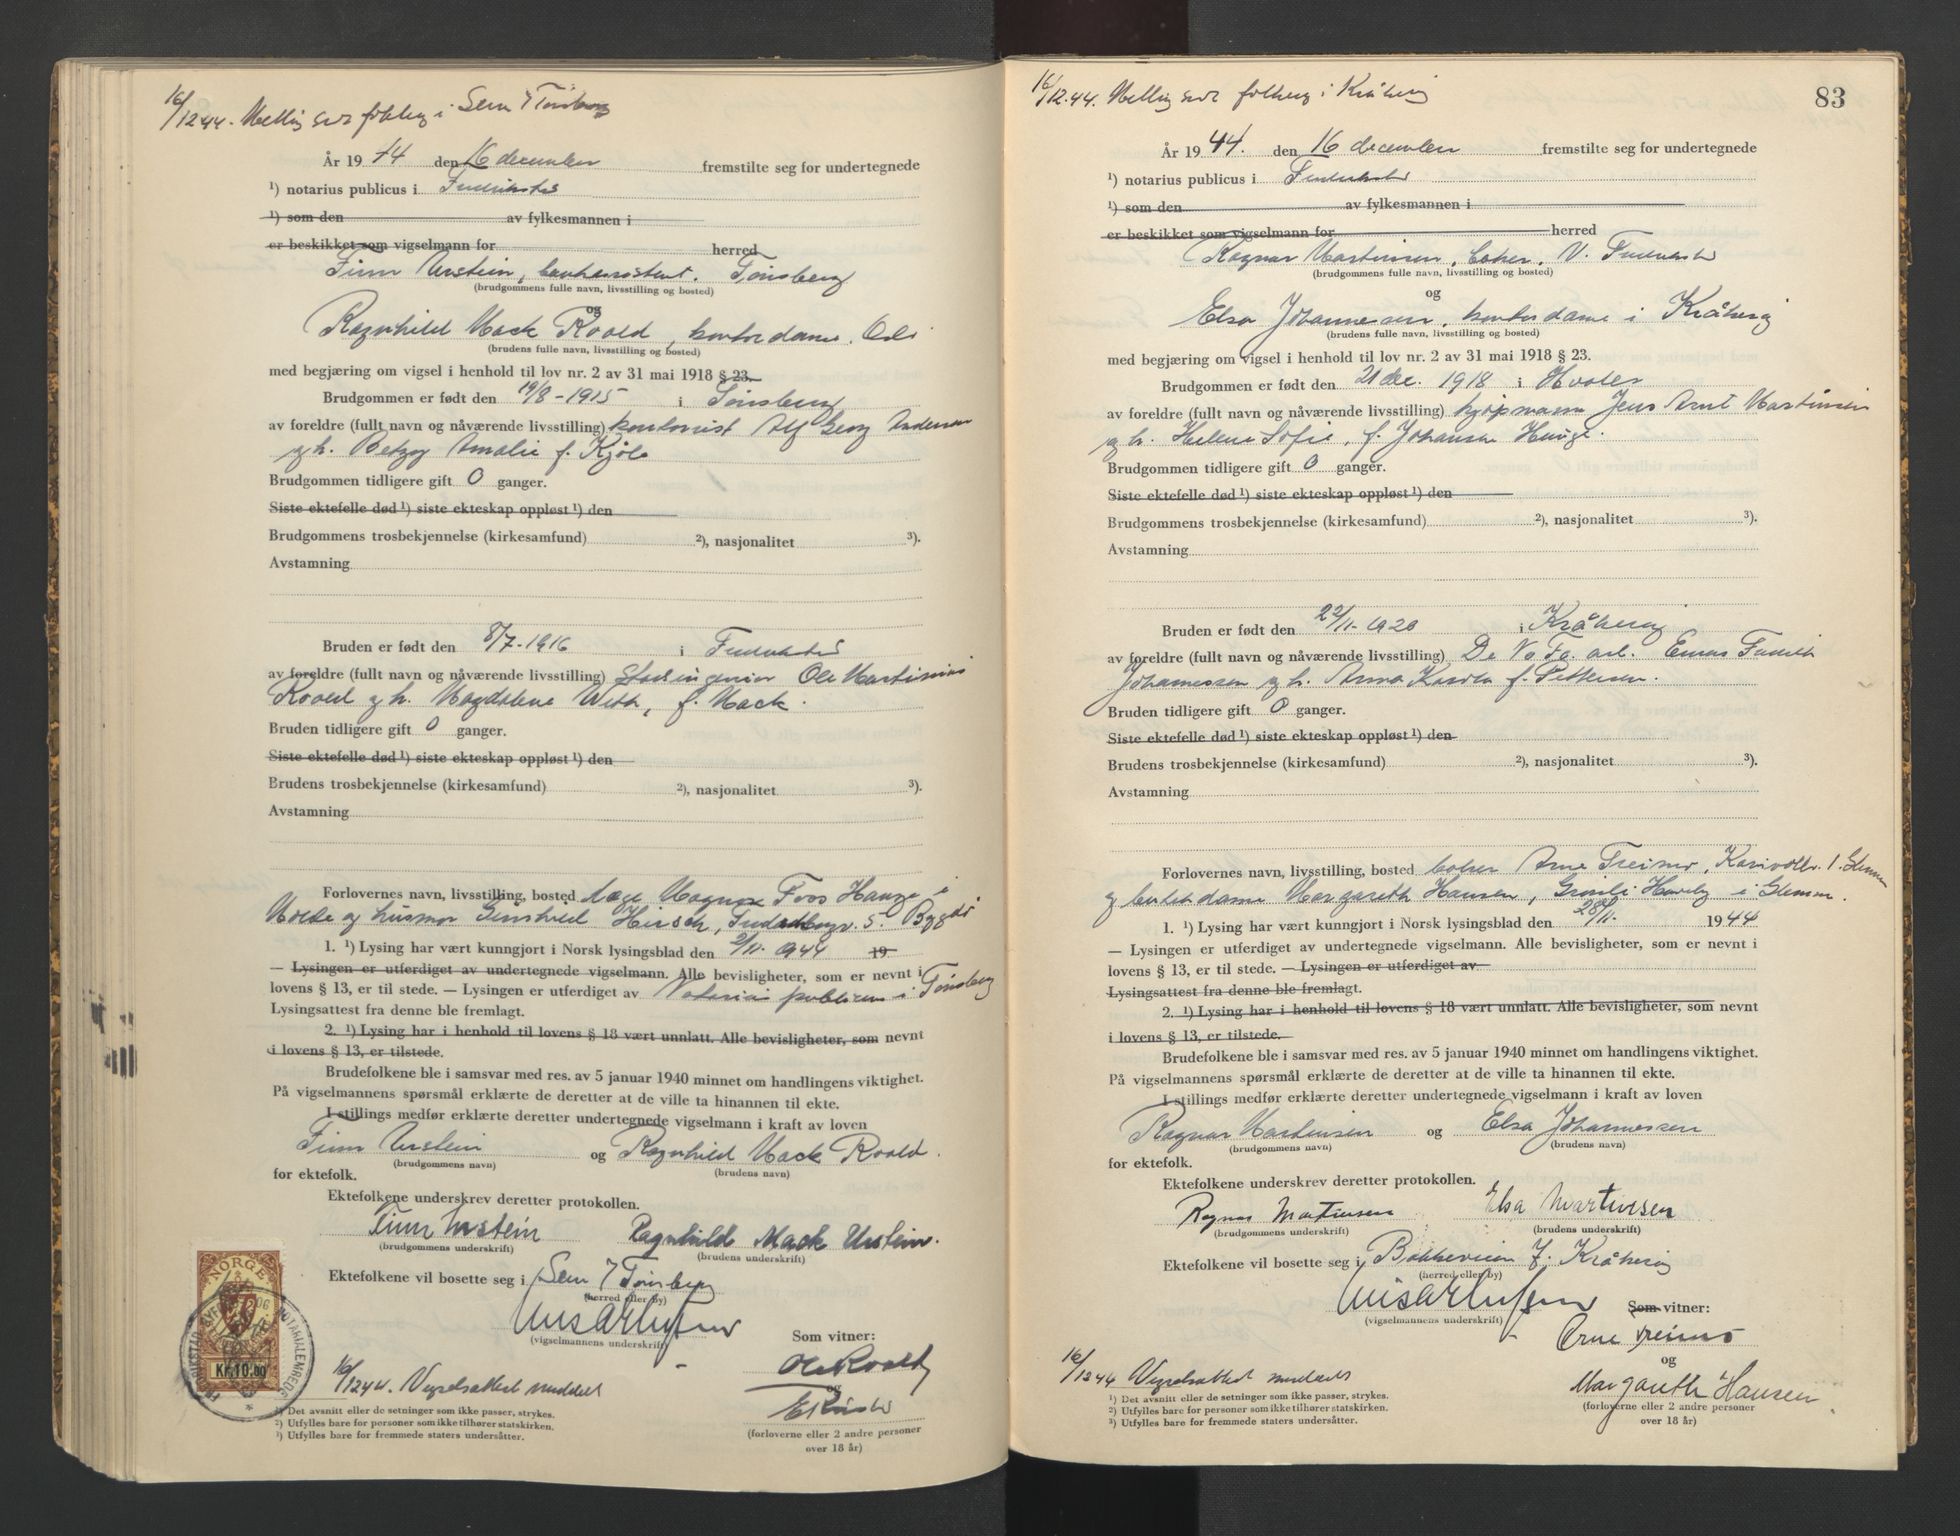 16/12.44. Melding sendt folkereg i Sem i Tønsberg
År 19 44 den 16 december fremstilte seg for undertegnede
¹) notarius publicus i Fredrikstad
¹) som den av fylkesmannen i
er beskikket som vigselmann for herred
Finn Urstein, bankassistent. Tønsberg
(brudgommens fulle navn, livsstilling og bosted)
og
Ragnhild Mack Roald, kontordame, Oslo
(brudens fulle navn, livsstilling og bosted)
med begjæring om vigsel i henhold til lov nr. 2 av 31 mai 1918 § 23.
Brudgommen er født den 19/8-1915 i Tønsberg
av foreldre (fullt navn og nåværende livsstilling) kontorist Alf Georg Andersen
og h. Betzy Amalie f. Kjøle
Brudgommen tidligere gift 0 ganger.
Siste ektefelle død ¹) siste ekteskap oppløst ¹) den
Brudgommens trosbekjennelse (kirkesamfund) ²), nasjonalitet ³).
Avstamning
Bruden er født den 8/7-1916 i Fredrikstad
av foreldre (fullt navn og nåværende livsstilling) stadsingeniør Ole Martinius
Roald og h. Magdalene With, f. Mack.
Bruden tidligere gift 0 ganger.
Siste ektefelle død ¹) siste ekteskap oppløst ¹) den
Brudens trosbekjennelse (kirkesamfund) ²), nasjonalitet ³).
Avstamning
Forlovernes navn, livsstilling, bosted læge Magnus Foss Hauge i
Molde og husmor Hirsch, 5. Bygdø
1. ¹) Lysing har vært kunngjort i Norsk lysingsblad den 2/11. 1944 19
— Lysingen er utferdiget av undertegnede vigselmann. Alle bevisligheter, som er nevnt i
lovens § 13, er til stede. — Lysingen er utferdiget av Notarius publicus i Tønsberg
Lysingsattest fra denne ble fremlagt.
2. ¹) Lysing har i henhold til lovens § 18 vært unnlatt. Alle bevisligheter, som nevnt
i lovens § 13, er tilstede.
Brudefolkene ble i samsvar med res. av 5 januar 1940 minnet om handlingens viktighet.
På vigselmannens spørsmål erklærte de deretter at de ville ta hinannen til ekte.
I stillings medfør erklærte deretter undertegnede vigselmann i kraft av loven
Finn Urstein og Ragnhild Mack Roald.
(brudgommens navn) (brudens navn)
for ektefolk.
Ektefolkene underskrev deretter protokollen.
Finn Urstein Ragnhild Mack Urstein.
(brudgommens underskrift) (brudens underskrift)
Ektefolkene vil bosette seg i Sem i Tønsberg
(herred eller by)
(vigselmannens underskrift)
Som vitner:
Ole Roald
og
NORGE
Kr. 10.00
16/12 44. Vigselsattest meddelt
¹) Det avsnitt eller de setninger som ikke passer, strykes.
²) Utfylles bare for personer som ikke tilhører statskirken.
³) Utfylles bare for fremmede staters undersåtter.
(forloverne eller 2 andre personer
over 18 år)
83
16/12.44. Melding sendt folkereg i Kråkerøy
År 19 44. den 16 december fremstilte seg for undertegnede
¹) notarius publicus i Fredrikstad
¹) som den av fylkesmannen i
er beskikket som vigselmann for herred
Ragnar Martinsen, baker, V. Fredrikstad
(brudgommens fulle navn, livsstilling og bosted)
og
Elsa Johannessen, kontordame i Kråkerøy
(brudens fulle navn, livsstilling og bosted)
med begjæring om vigsel i henhold til lov nr. 2 av 31 mai 1918 § 23.
Brudgommen er født den 21 dec. 1918 i Hvaler
av foreldre (fullt navn og nåværende livsstilling) kjøpmann Jens Arnt Martinsen
og h. Helene Sofie, f. Johansen Hauge.
Brudgommen tidligere gift 0 ganger.
Siste ektefelle død ¹) siste ekteskap oppløst ¹) den
Brudgommens trosbekjennelse (kirkesamfund) ²), nasjonalitet ³).
Avstamning
Bruden er født den 22/11-1920 i Kråkerøy
av foreldre (fullt navn og nåværende livsstilling) De No Fa. arb.
Johannessen og h. Anna Karola f. Pettersen.
Bruden tidligere gift 0 ganger.
Siste ektefelle død ¹) siste ekteskap oppløst ¹) den
Brudens trosbekjennelse (kirkesamfund) ²), nasjonalitet ³).
Avstamning
Forlovernes navn, livsstilling, bosted baker Arne Treimo, 1. Glemmen
og Margareth Hansen, i Glemmen.
1. ¹) Lysing har vært kunngjort i Norsk lysingsblad den 28/11. 1944
— Lysingen er utferdiget av undertegnede vigselmann. Alle bevisligheter, som er nevnt i
lovens § 13, er til stede. — Lysingen er utferdiget av
Lysingsattest fra denne ble fremlagt.
2. ¹) Lysing har i henhold til lovens § 18 vært unnlatt. Alle bevisligheter, som nevnt
i lovens § 13, er tilstede.
Brudefolkene ble i samsvar med res. av 5 januar 1940 minnet om handlingens viktighet.
På vigselmannens spørsmål erklærte de deretter at de ville ta hinannen til ekte.
I stillings medfør erklærte deretter undertegnede vigselmann i kraft av loven
Ragnar Martinsen og Elsa Johannessen
(brudgommens navn) (brudens navn)
for ektefolk.
Ektefolkene underskrev deretter protokollen.
Ragnar Martinsen Elsa Martinsen
(brudgommens underskrift) (brudens underskrift)
Ektefolkene vil bosette seg i Bakkeveien 7. Kråkerøy
(herred eller by)
(vigselmannens underskrift)
Som vitner:
Arne Treimo
og
Margareth Hansen
16/12 44 Vigselsattest meddelt
¹) Det avsnitt eller de setninger som ikke passer, strykes.
²) Utfylles bare for personer som ikke tilhører statskirken.
³) Utfylles bare for fremmede staters undersåtter.
(forloverne eller 2 andre personer
over 18 år)